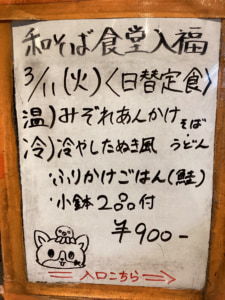 和そば食堂入福
3/11(火)〈日替定食〉
温)みぞれあんかけ
そば・うどん
冷)冷やしたぬき風
・ふりかけごはん(鮭)
・小鉢2品付
¥900-
⇒入口こちら→